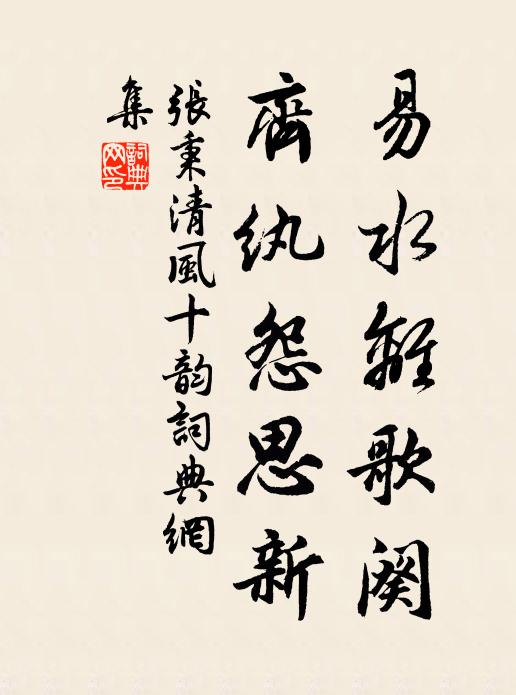 易水離歌闋
齊紈怨思新
張秉清風十韵詞典網
集
詞典網印